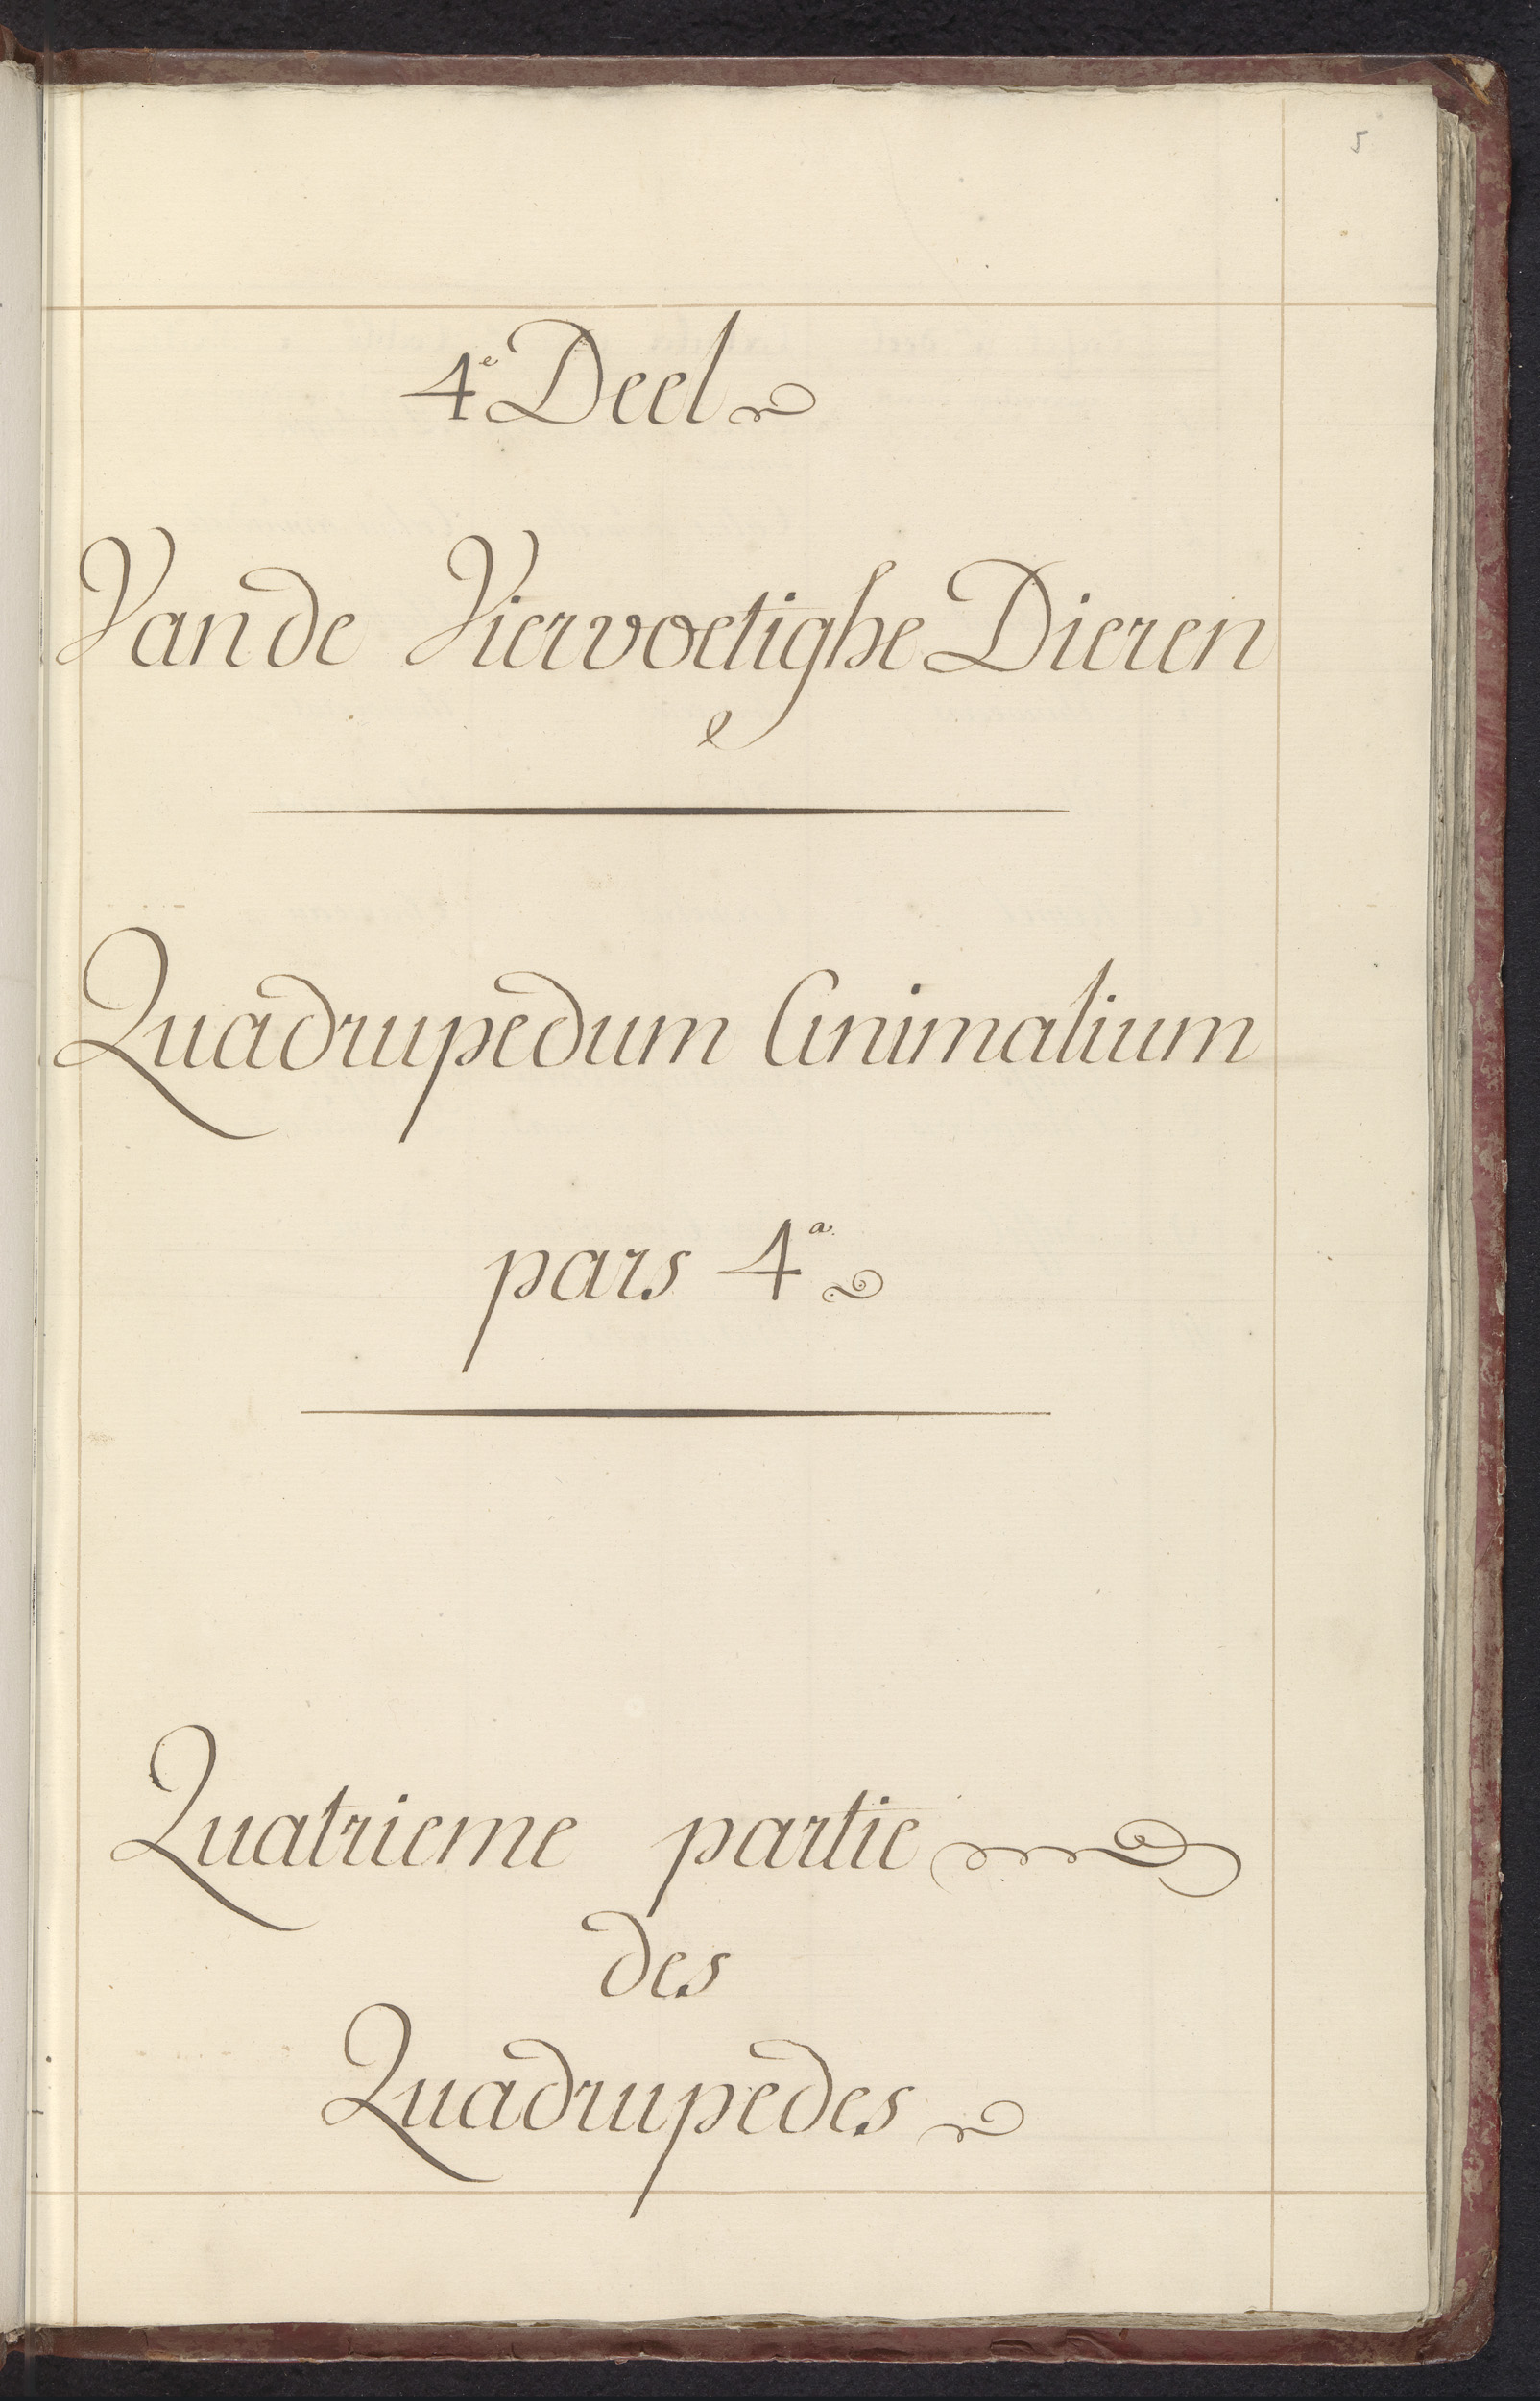 5
4e Deel
Van de Viervoetighe Dieren
Quadrupedum Animalium
pars 4a.
Quatrieme partie
des
Quadrupedes